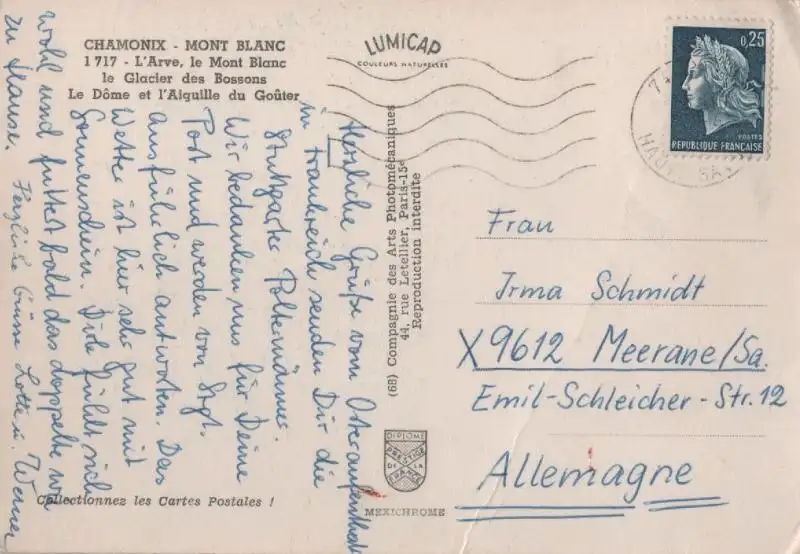 CHAMONIX - MONT BLANC
1717 - L'Arve, le Mont Blanc
le Glacier des Bossons
Le Dôme et l'Aiguille du Goûter
LUMICAP
COULEURS NATURELLES
0,25
POSTES
REPUBLIQUE FRANÇAISE
Herzliche Grüße vom Osteraufenthalt
in Frankreich senden Dir die
Stuttgarter
Wir bedanken uns für Deine
Post und werden von Stgt.
ausführlich antworten. Das
Wetter ist hier sehr gut mit
Sonnenschein. Dirk fühlt sich
wohl und futtert bald das doppelte wie
zu Hause. Herzliche Grüsse Lotte u. Werner
(68) Compagnie des Arts Photomécaniques
44, rue Letellier, Paris-15e
Reproduction interdite
Frau
Irma Schmidt
X9612 Meerane/Sa.
Emil-Schleicher-Str. 12
Allemagne
DIPLOME
PRESTIGE
DE LA
FRANCE
MEXICHROME
Collectionnez les Cartes Postales !